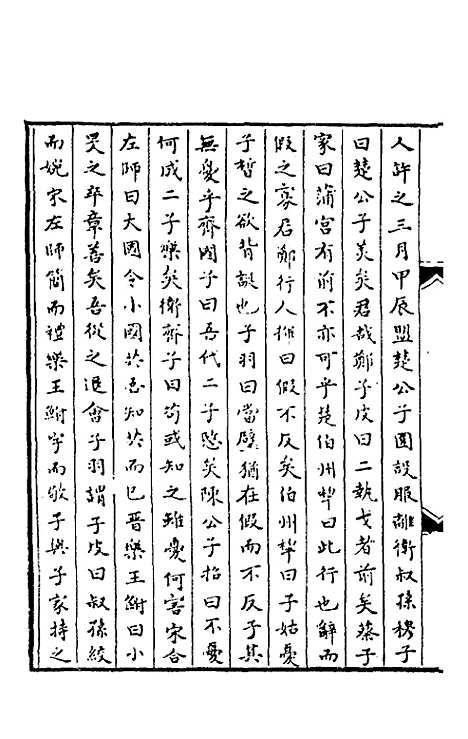 人許之三月甲辰盟楚公子圍設服離衛叔孫穆子
曰楚公子美矣君哉鄭子皮曰二執戈者前矣蔡子
家曰蒲宮有前不亦可乎楚伯州犂曰此行也辭而
假之寡君鄭行人揮曰假不反矣伯州犂曰子姑憂
子晳之欲背誕也子羽曰當璧猶在假而不反子其
無憂乎齊國子曰吾代二子愍矣陳公子招曰不憂
何成二子樂矣衛齊子曰苟或知之雖憂何害宋合
左師曰大國令小國共吾知共而已晉樂王鮒曰小
旻之卒章善矣吾從之退會子羽謂子皮曰叔孫絞
而婉宋左師簡而禮樂王鮒字而敬子與子家持之